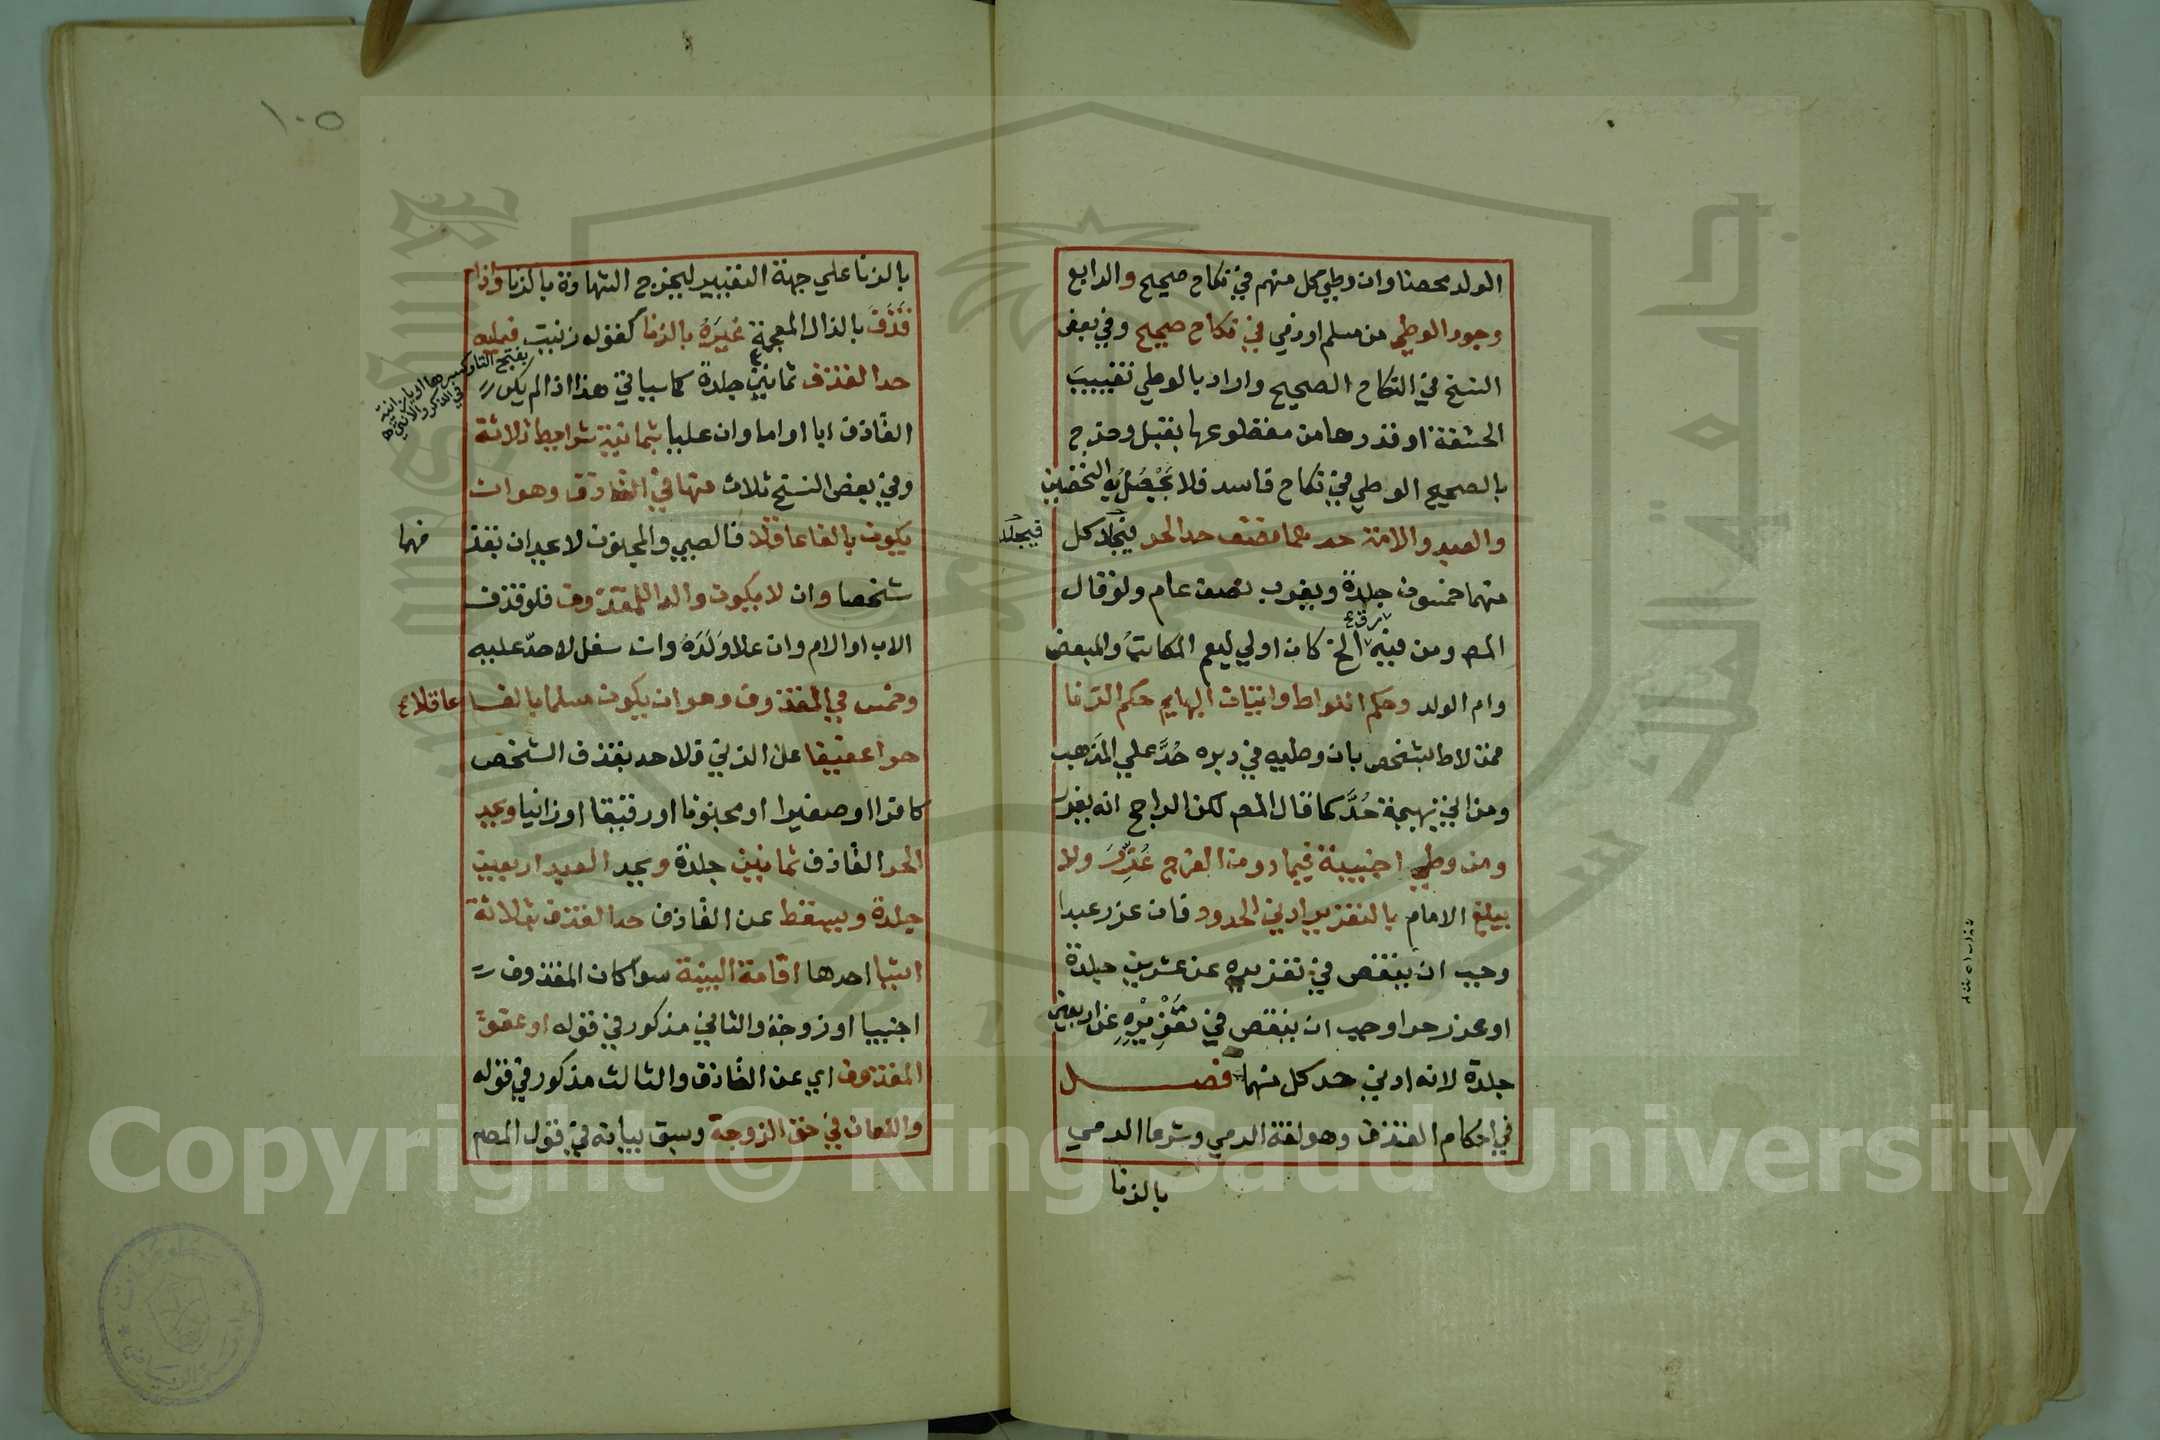 الولد محصنا وان وطي كل منهم في نكاح صحيح والرابع
وجود الوطي من مسلم او ذمي في نكاح صحيح وفي بعض
النسخ في النكاح الصحيح واراد بالوطي تغييب
الحشفة او قدرها من مقطوعها بقبل وخرج
بالصحيح الوطي في نكاح فاسد فلا يحصل به التحصين
والعبد والامة حدهما نصف حد الحر فيجلد كل
فيجلد
منهما خمسون جلدة ويغرب نصف عام ولو قال
المص ومن فيه رق الخ كان اولي ليعم المكاتب والمبعض
وام الولد وحكم اللواط واتيان البهايم حكم الزنا
فمن لاط بشخص بان وطيه في دبره حد علي المذهب
ومن اتي بهيمة حد كما قال المص لكن الراجح انه يعزر
ومن وطي اجنبية فيما دون الفرج عزر ولا
يبلغ الامام بالتعزير ادني الحدود فان عزر عبدا
وجب ان ينقص في تعزيره عن عشرين جلدة
او عزر حرا وجب ان ينقص في تعزيره عن اربعين
جلدة لانه ادني حد كل منهما فصل
في احكام القذف وهو لغة الرمي وشرعا الرمي
بالزنا
١٠٥
بالزنا علي جهة التعيير ليخرج الشهادة بالزنا واذا
قذف بالذال المعجمة غيره بالزنا كقوله زنيت فعليه
بفتح التا وكسرها
في الذكر والانثي
حد القذف ثمانين جلدة كما سياتي هذا اذا لم يكن
القاذف ابا او اما وان عليا بثمانية شرايط ثلاثة
وفي بعض النسخ ثلاث منها في القاذف وهو ان
يكون بالغا عاقلا فالصبي والمجنون لا يحدان بقذ
فهما
شخصا وان لا يكون والدا للمقذوف فلو قذف
الاب او الام وان علا ولده وان سفل لا حد عليه
وخمس في المقذوف وهو ان يكون مسلما بالغا
عاقلا
حرا عفيفا عن الزني فلا حد بقذف الشخص
كافرا او صغيرا او مجنونا او رقيقا او زانيا ويحد
الحر القاذف ثمانين جلدة ويحد العبد اربعين
جلدة ويسقط عن القاذف حد القذف بثلاثة
اشيا احدها اقامة البينة سوا كان المقذوف
اجنبيا او زوجة والثاني مذكور في قوله او عفو
المقذوف اي عن القاذف والثالث مذكور في قوله
واللعان في حق الزوجة وسبق بيانه في قول المص
Copyright © King Saud University